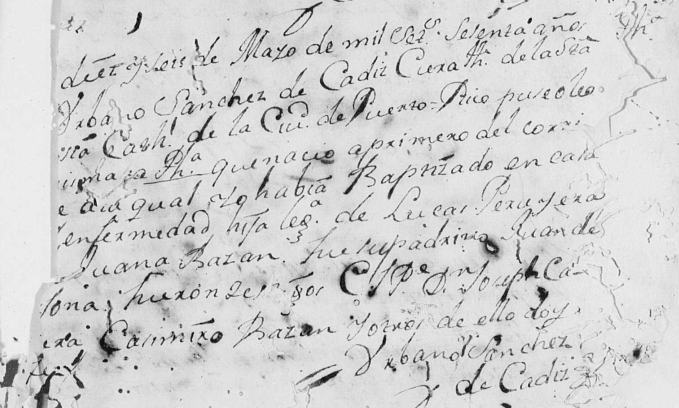 diez y seis de Mayo de mil Setz.s Sesenta años
Vrbano Sanchez de Cadiz Cura th.e de la Sta
sta Cath.l de la Ciud. de Puerto-Rico puse oleo
risma: a Ph.a que nacio a primero del corri
e a la qual yo había Baptizado en cassa
enfermedad hija leg.a de Lucas Peru y era
Juana Bazan: fue su padrino Juan de
sona: fueron testigos el P.e D. Joseph Ca-
era Casimiro Bazan y otros de ello doy
fee
Vrbano Sanchez
de Cadiz